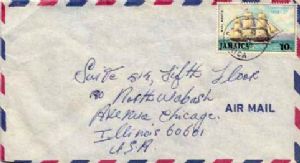 JAMAICA 10c
Suite 514, Fifth Floor
North Wabash
AIR MAIL
Avenue Chicago.
Illinois 60601
U.S.A.